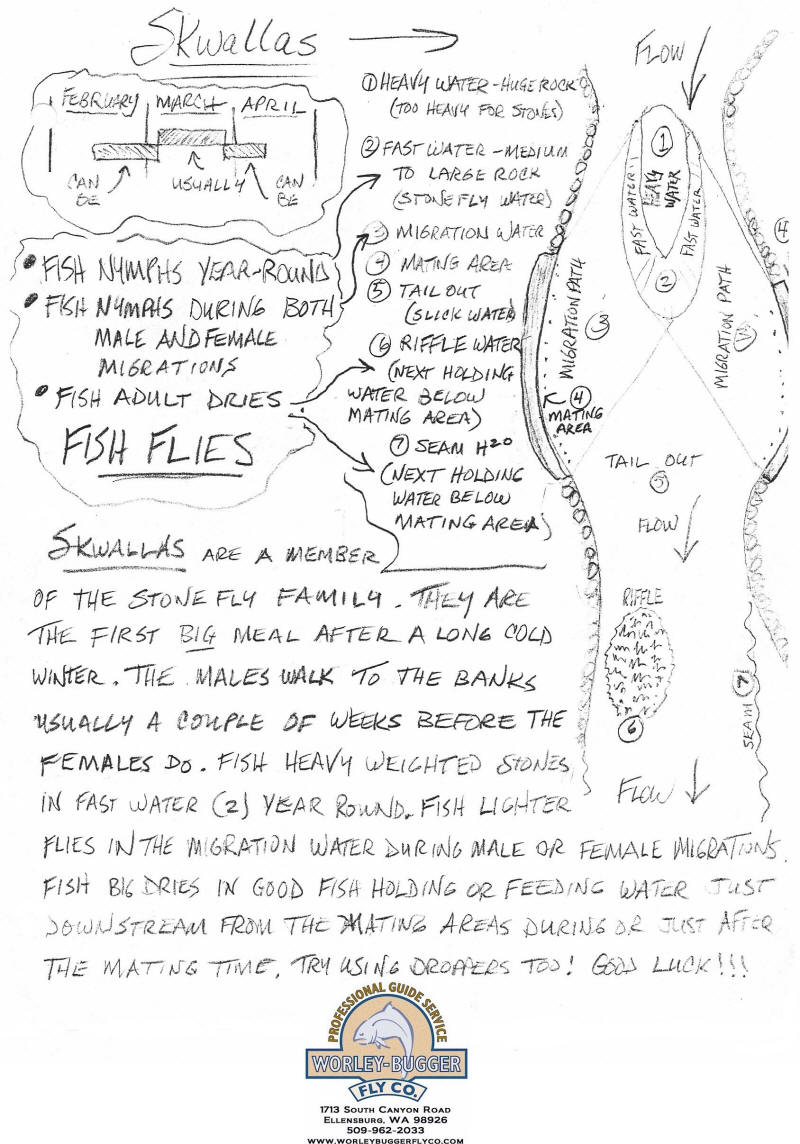 Skwallas
FEBRUARY MARCH APRIL
CAN BE
USUALLY
CAN BE
• FISH NYMPHS YEAR-ROUND
• FISH NYMPHS DURING BOTH
MALE AND FEMALE
MIGRATIONS
• FISH ADULT DRIES
FISH FLIES
① HEAVY WATER - HUGE ROCK
(TOO HEAVY FOR STONES)
② FAST WATER - MEDIUM
TO LARGE ROCK
(STONE FLY WATER)
③ MIGRATION WATER
④ MATING AREA
⑤ TAIL OUT
(SLICK WATER)
⑥ RIFFLE WATER
(NEXT HOLDING
WATER BELOW
MATING AREA)
⑦ SEAM H2O
(NEXT HOLDING
WATER BELOW
MATING AREA)
FLOW
①
HEAVY
WATER
FAST WATER
FAST WATER
②
MIGRATION PATH
③
MIGRATION PATH
④
④
MATING
AREA
TAIL OUT
⑤
FLOW
RIFFLE
⑥
SEAM ⑦
FLOW
SKWALLAS ARE A MEMBER
OF THE STONE FLY FAMILY. THEY ARE
THE FIRST BIG MEAL AFTER A LONG COLD
WINTER. THE MALES WALK TO THE BANKS
USUALLY A COUPLE OF WEEKS BEFORE THE
FEMALES DO. FISH HEAVY WEIGHTED STONES
IN FAST WATER (2) YEAR ROUND. FISH LIGHTER
FLIES IN THE MIGRATION WATER DURING MALE OR FEMALE MIGRATIONS.
FISH BIG DRIES IN GOOD FISH HOLDING OR FEEDING WATER JUST
DOWNSTREAM FROM THE MATING AREAS DURING OR JUST AFTER
THE MATING TIME. TRY USING DROPPERS TOO! GOOD LUCK!!!
PROFESSIONAL GUIDE SERVICE
WORLEY-BUGGER
FLY CO.
1713 SOUTH CANYON ROAD
ELLENSBURG, WA 98926
509-962-2033
WWW.WORLEYBUGGERFLYCO.COM